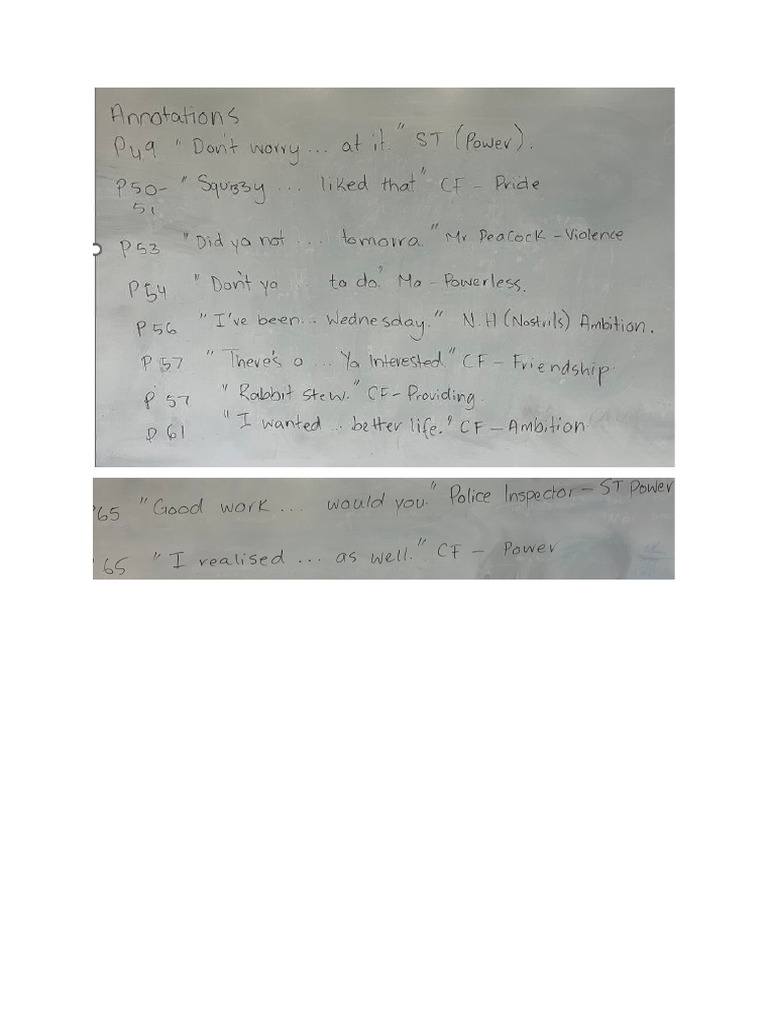 Annotations
P49 "Don't worry ... at it." ST (Power).
P50- "Squizzy ... liked that" CF - Pride
51
P53 "Did ya not ... tomorra." Mr Peacock - Violence
P54 "Don't ya to do." Ma - Powerless.
P56 "I've been... Wednesday." N.H (Nostrils) Ambition.
P57 "There's o ... Ya Interested." CF - Friendship.
P57 "Rabbit stew." CF- Providing.
P61 "I wanted ... better life." CF - Ambition
'65 "Good work ... would you." Police Inspector - ST Power
'65 "I realised ... as well." CF - Power